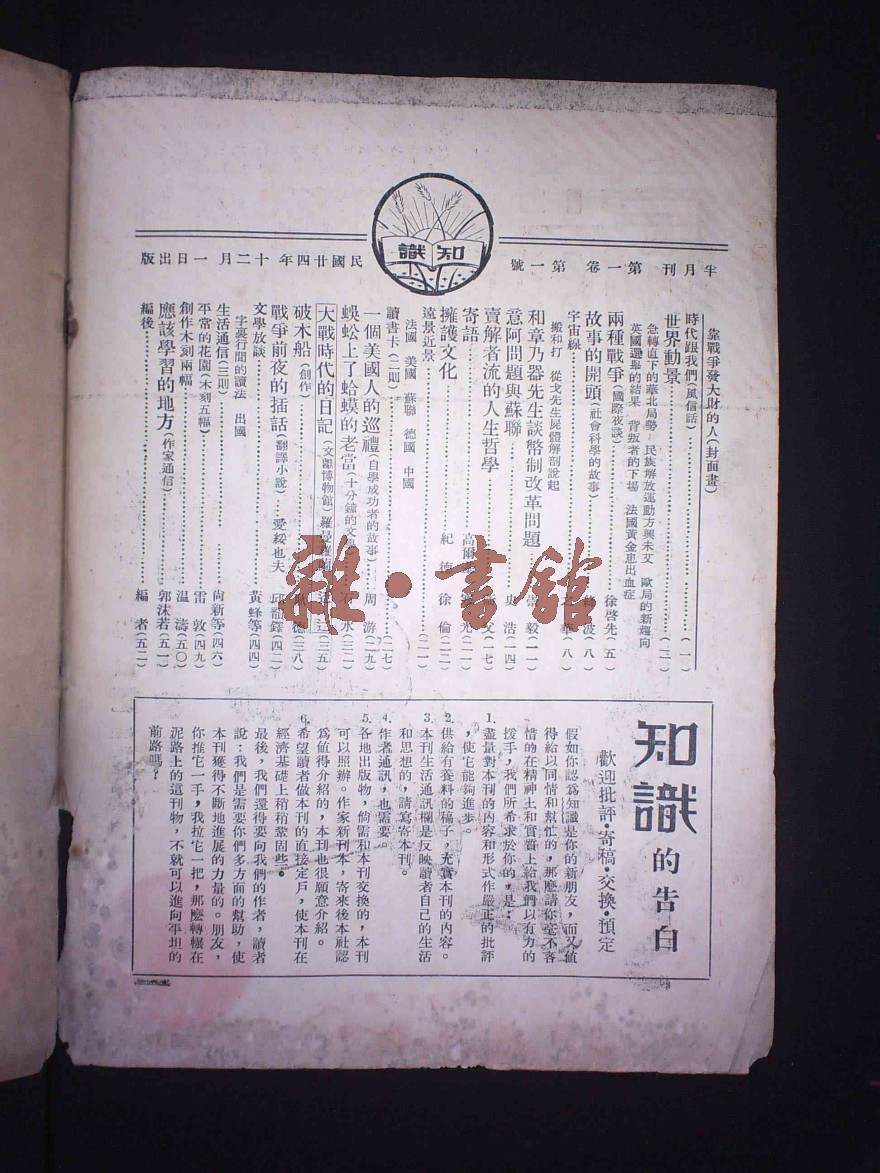 半月刊 第一卷 第一號
知識
民國廿四年十二月一日出版
靠戰爭發大財的人(封面畫)
時代跟我們(風信話)(一)
世界動景(三)
急轉直下的華北局勢 民族解放運動方興未艾 歐局的新趨向
英國選舉的結果 背叛者的下場 法國黃金患出血症
兩種戰爭(國際夜談)徐啓先(五)
故事的開頭(社會科學的故事)波(八)
宇宙線 華(八)
搬和打 從戈先生屍體解剖說起
和章乃器先生談幣制改革問題 崇毅(一一)
意阿問題與蘇聯 史浩(一四)
賣解者流的人生哲學 父(一七)
寄語 高爾
擁護文化 紀德 徐倫(二二)
遠景近景(二一)
法國 美國 蘇聯 德國 中國
讀書卡(二則)(一七)
一個美國人的巡禮(自學成功者的故事)周游(二九)
蜈蚣上了蛤蟆的老當(十分鐘的文 水(三二)
大戰時代的日記(文獻博物館)羅曼 (三五)
破木船(創作) 德(三八)
戰爭前夜的插話(翻譯小說)愛綏也夫 邱韻鐸(四二)
文學放談 黃蜂等(四四)
字典行間的讀法 出國
生活通信(三則)尙新等(四六)
平常的花園(木刻五幅)雷敦(四九)
創作木刻兩幅 温濤(五〇)
應該學習的地方(作家通信)郭沫若(五一)
編後 編者(五二)
雜·書館
知識的告白
歡迎批評·寄稿·交換·預定
假如你認爲知識是你的新朋友,而又值
得給以同情和幫忙的,那麽請你毫不吝
惜的在精神土和實質上給我們以有力的
援手,我們所希求於你的,是:
1.盡量對本刊的內容和形式作嚴正的批評
,使它能夠進步。
2.供給有養料的稿子,充實本刊的內容。
3.本刊生活通訊欄是反映讀者自己的生活
和思想的,請寫寄本刊。
4.作者通訊,也需要。
5.各地出版物,倘需和本刊交換的,本刊
可以照辦。作家新刊本,寄來後本社認
爲値得介紹的,本刊也很願意介紹。
6.希望讀者做本刊的直接定戶,使本刊在
經濟基礎上稍稍鞏固些。
最後,我們還得要向我們的作者,讀者
說:我們是需要你們多方面的幫助,使
本刊獲得不斷地進展的力量的。朋友,
你推它一手,我拉它一把,那麽轉輾在
泥路上的這刊物,不就可以進向平坦的
前路嗎?